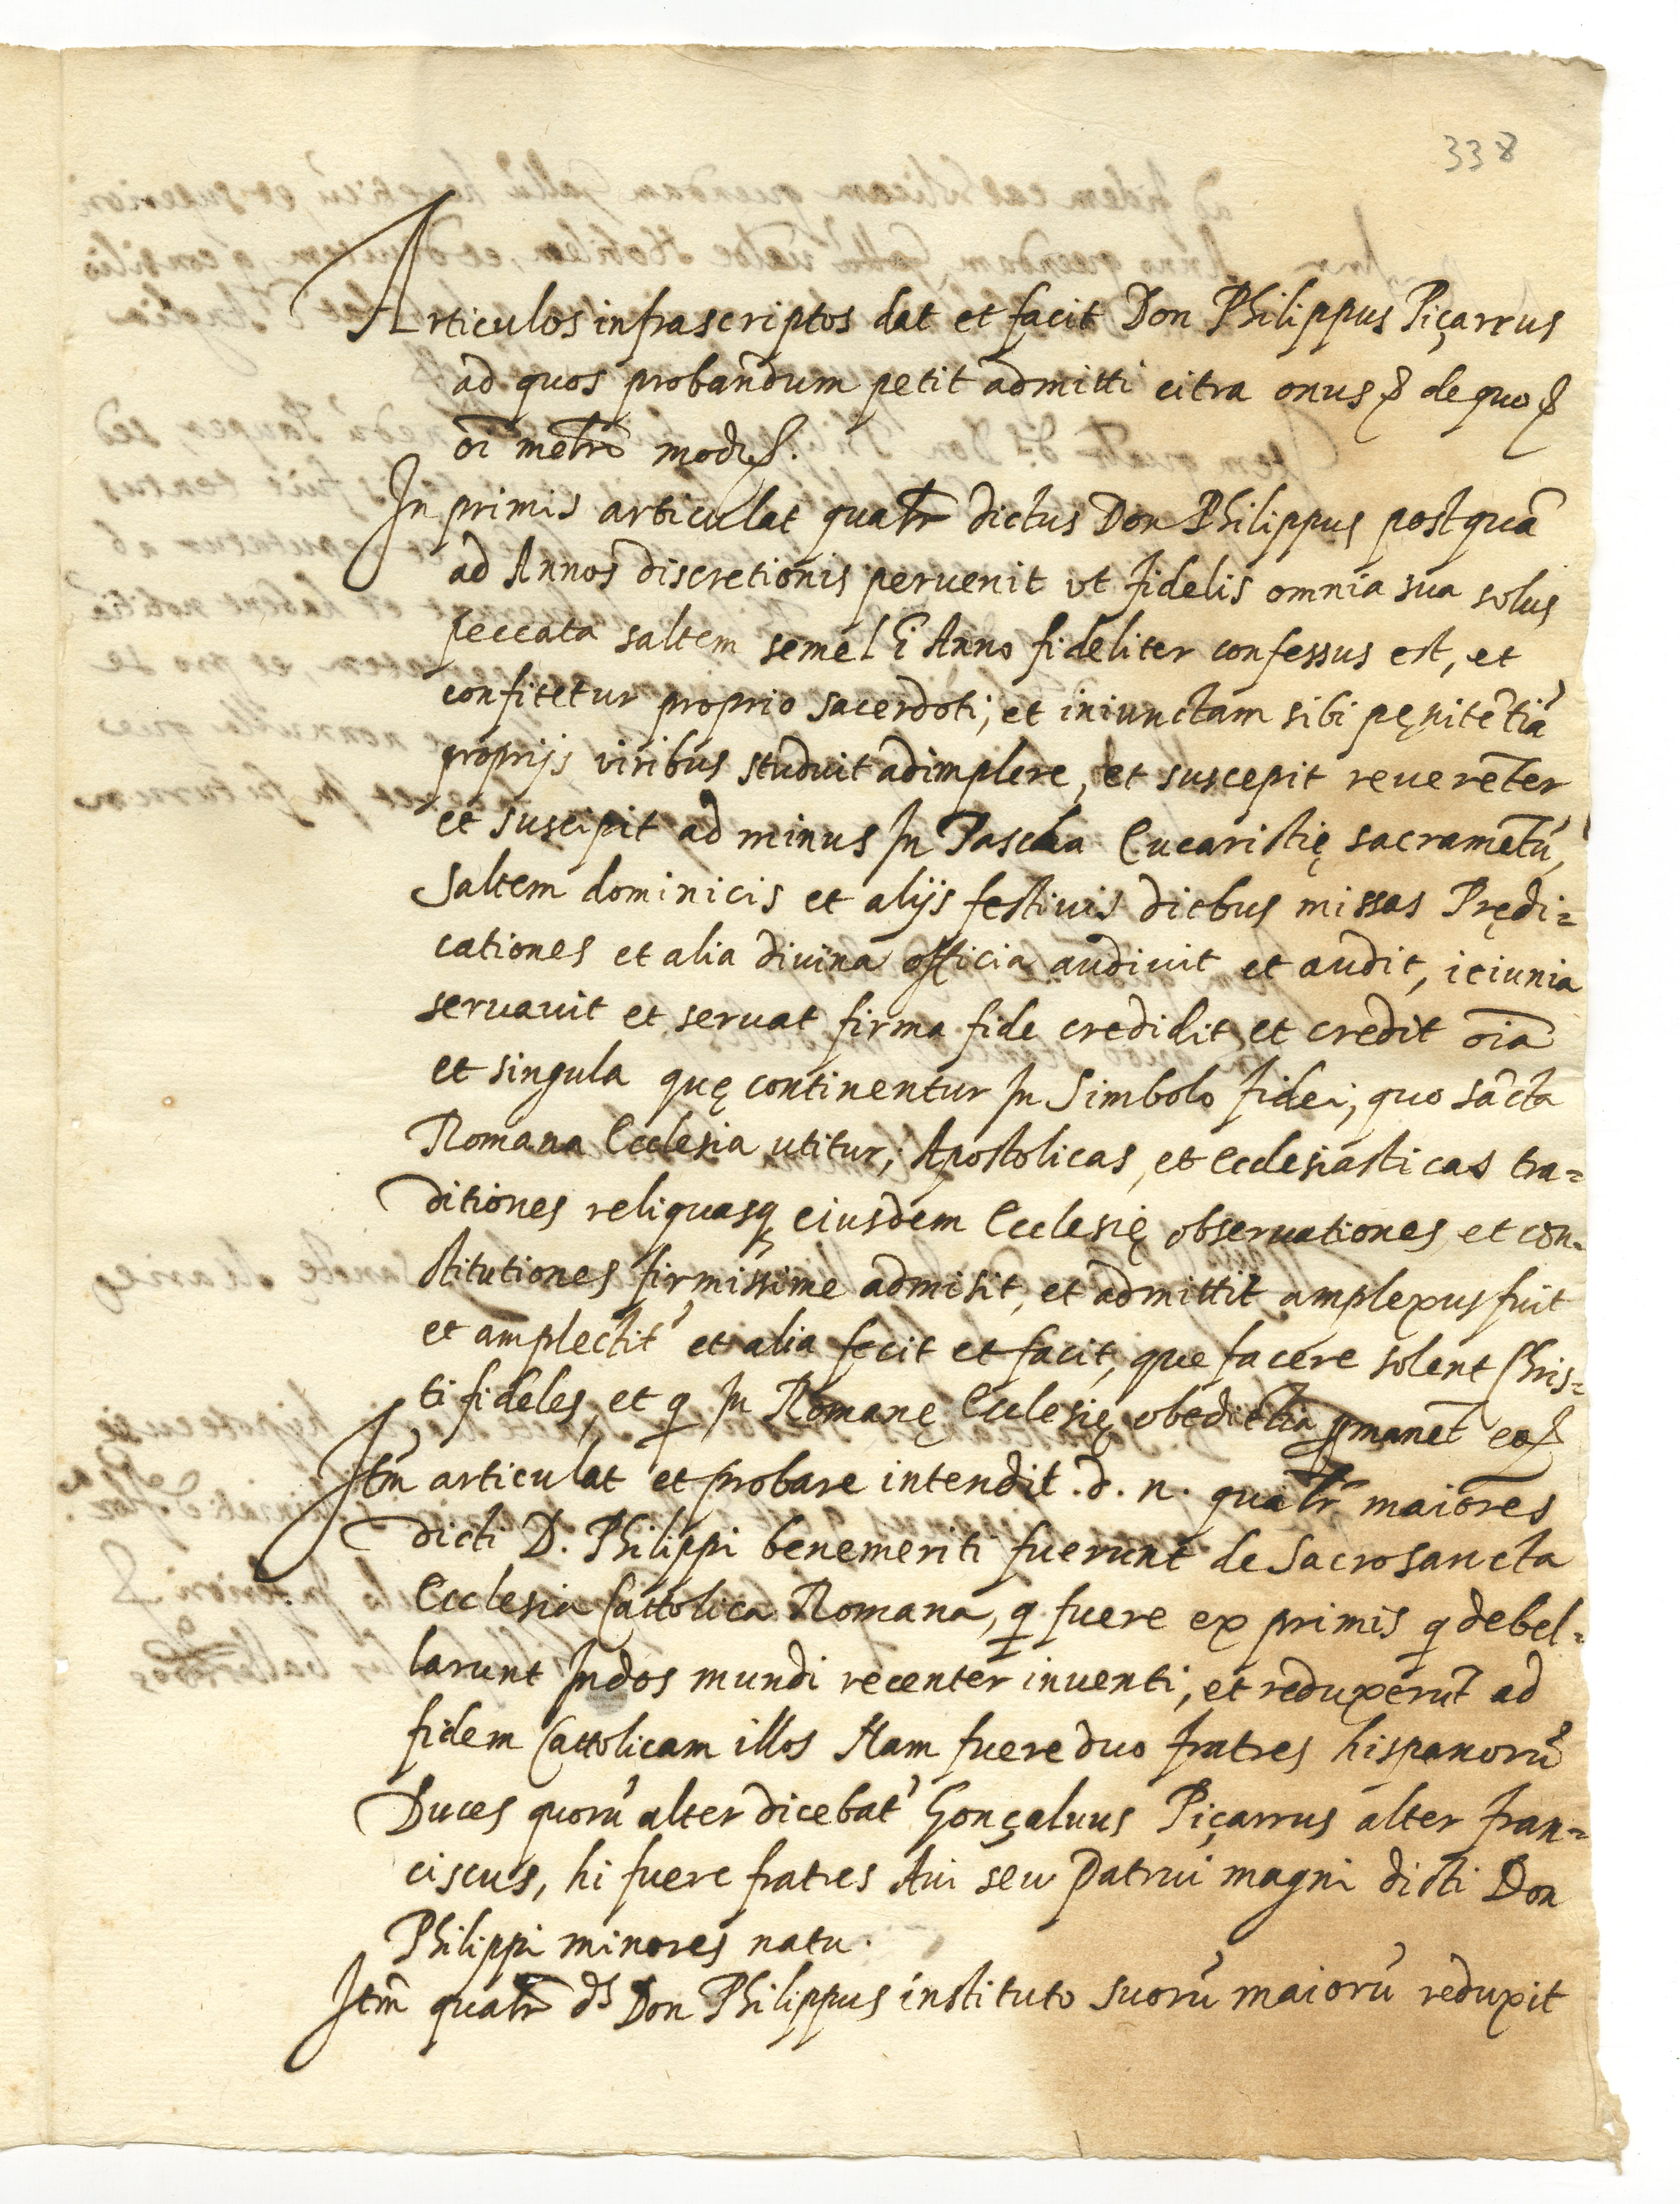 338
Articulos infrascriptos dat et facit Don Philippus Piçarrus
ad quos probandum petit admitti citra onus de quo
oi melri mod
In primis articulat qualr dictus Don Philippus postquā
ad Annos discretionis peruenit vt fidelis omnia sua solus
peccata saltem semel ī Anno fideliter confessus est, et
confitetur proprio sacerdoti, et iniunctam sibi pęnitētiā
proprijs viribus studuit adimplere, et suscepit reuerēter
et suscipit ad minus In Pascha Eucaristię sacramētū,
saltem dominicis et alijs festiuis diebus missas Prędi=
cationes et alia diuina officia audiuit et audit, ieiunia
seruauit et seruat firma fide credidit et credit oīa
et singula quę continentur In Simbolo fidei, quo sācta
Romana Ecclesia utitur, Apostolicas, et ecclesiasticas tra=
ditiones reliquasq eiusdem Ecclesię obseruationes, et con=
stitutiones firmissime admisit, et admittit amplexus fuit
et amplectit' et alia fecit et facit, que facere solent Chris=
ti fideles, et q In Romanę Ecclesię obediētia pmanēt
Itm̄ articulat et probare intendit .d. n. qualr maiores
dicti D. Philippi benemeriti fuerunt de Sacrosancta
Ecclesia Cattolica Romana, q fuere ex primis q debel=
larunt Indos mundi recenter inuenti, et reduxerūt ad
fidem Cattolicam illos Nam fuere duo fratres hispanorū
Duces quorū alter dicebat' Gonçaluus Piçarrus alter Fran=
ciscus, hi fuere fratres Aui seu Patrui magni dicti Don
Philippi minores natu.
Itm̄ qualr ds Don Philippus instituto suorū maiorū reduxit